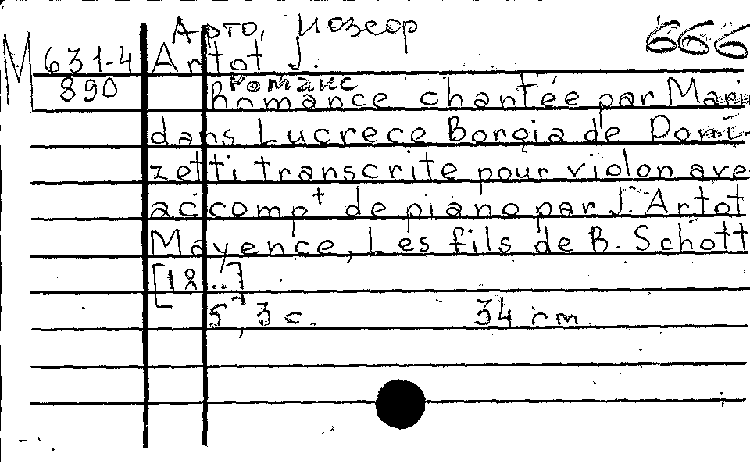 Арто, Жозеф 666
М 631-4 Artot J.
890 Романс
Romance chantée par Mari
dans Lucrece Borgia de Doni
zetti transcrite pour violon ave
accompt de piano par J. Artot
Mayence, Les fils de B. Schott
[18..]
5, 3 c. 34 cm